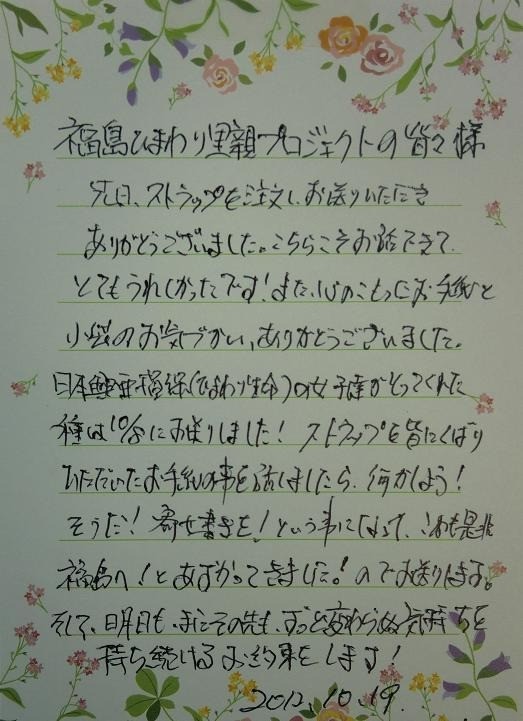 福島ひまわり里親プロジェクトの皆々様
先日、ストラップを注文し、お送りいただき
ありがとうございました。こちらこそお話できて、
とてもうれしかったです!また、心のこもったお手紙と
お気づかい、ありがとうございました。
日本興亜(ひまわり生命)の女子達がとってくれた
種は10/5にお送りしました! ストラップを皆にくばり
いただいたお手紙の事を話しましたら、何かしよう!
そうだ!寄せ書きを!という事になって、これも是非
福島へ!とあずかってきました!のでお送りします。
そして、明日も、またその先も、ずっと変わらぬ気持ちを
持ち続けるお約束をします!
2012.10.19.